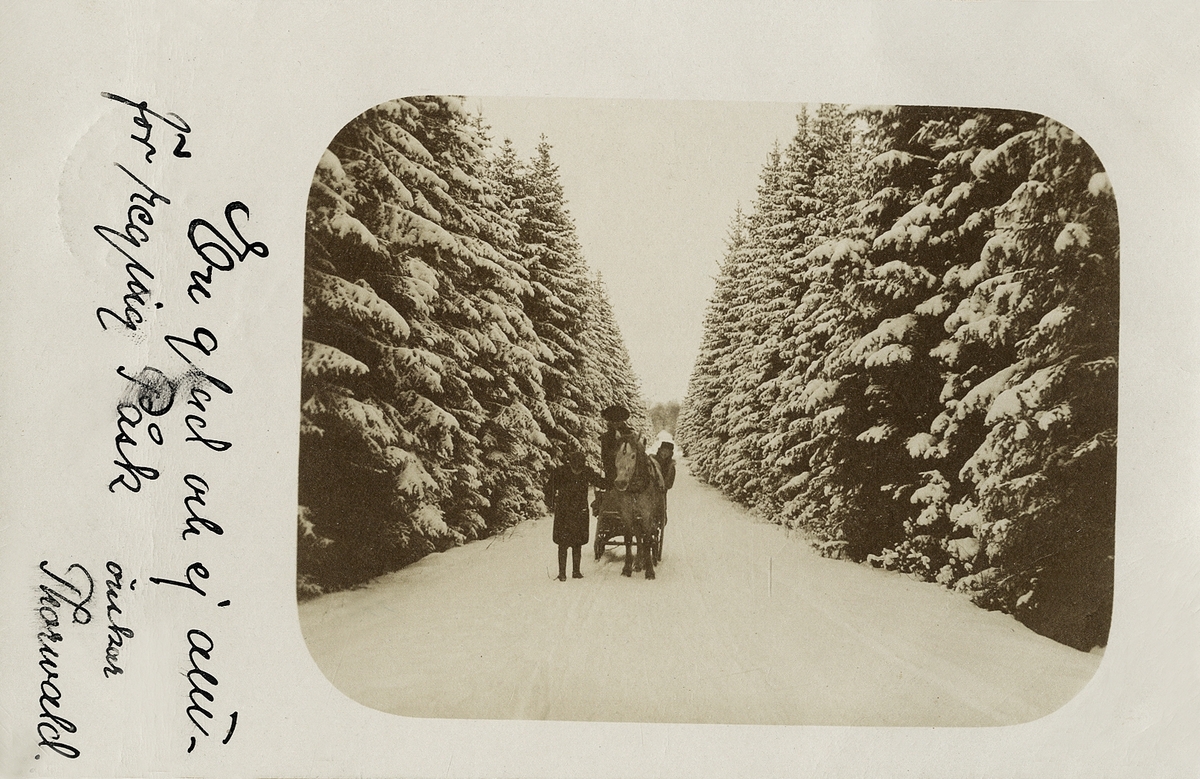 En glad och ej allt-
för regnig Påsk
önskar
Thorwald.